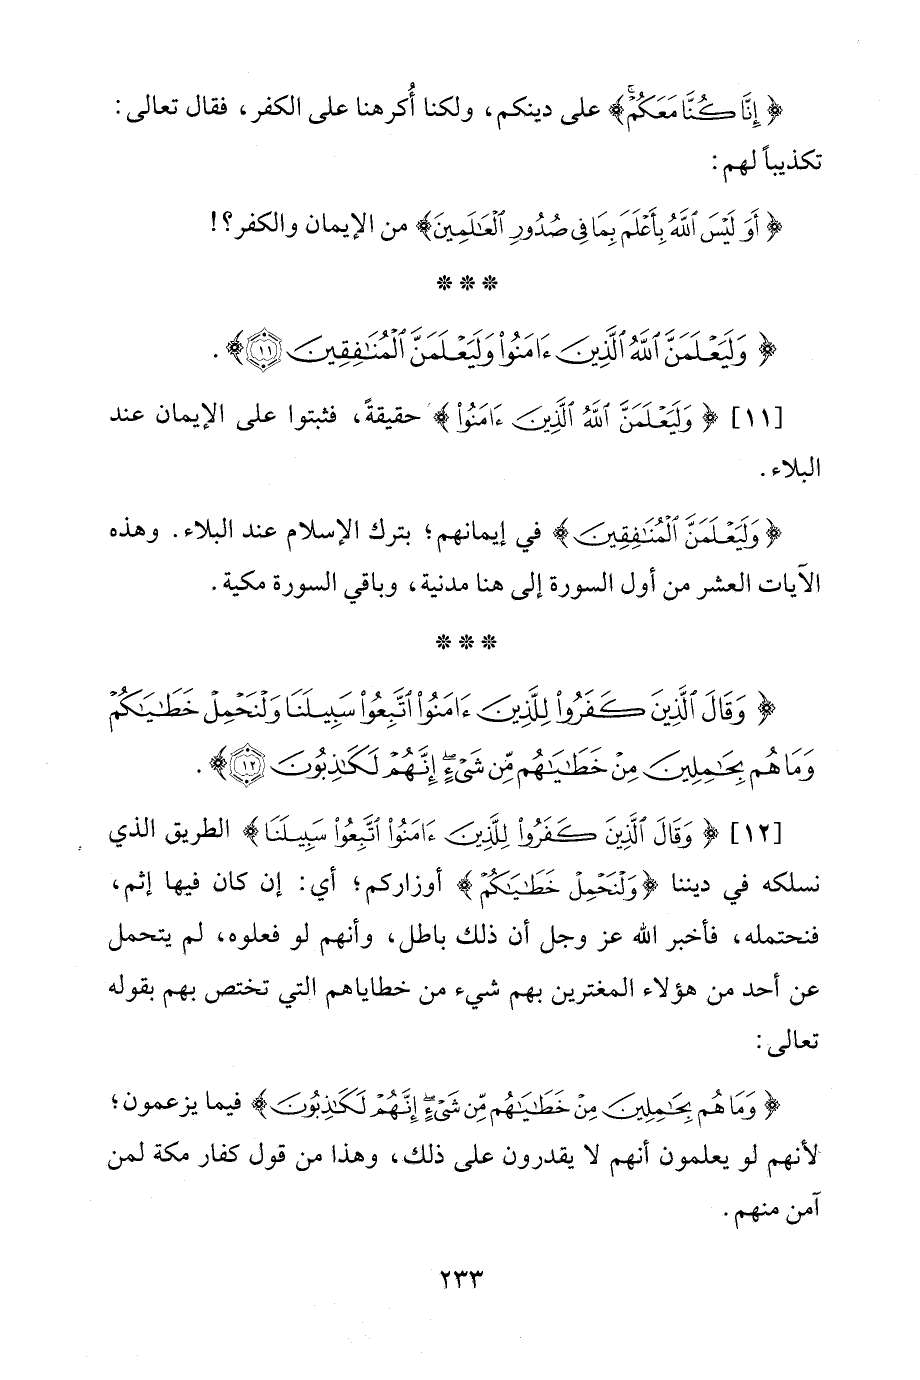 ﴿ إِنَّا كُنَّا مَعَكُمْ ﴾ على دينكم، ولكنا أُكرهنا على الكفر، فقال تعالى:
تكذيباً لهم:
﴿ أَوَ لَيْسَ ٱللَّهُ بِأَعْلَمَ بِمَا فِى صُدُورِ ٱلْعَـٰلَمِينَ ﴾ من الإيمان والكفر؟!
* * *
﴿ وَلَيَعْلَمَنَّ ٱللَّهُ ٱلَّذِينَ ءَامَنُوا۟ وَلَيَعْلَمَنَّ ٱلْمُنَـٰفِقِينَ ١١ ﴾.
[١١] ﴿ وَلَيَعْلَمَنَّ ٱللَّهُ ٱلَّذِينَ ءَامَنُوا۟ ﴾ حقيقةً، فثبتوا على الإيمان عند
البلاء.
﴿ وَلَيَعْلَمَنَّ ٱلْمُنَـٰفِقِينَ ﴾ في إيمانهم؛ بترك الإسلام عند البلاء. وهذه
الآيات العشر من أول السورة إلى هنا مدنية، وباقي السورة مكية.
* * *
﴿ وَقَالَ ٱلَّذِينَ كَفَرُوا۟ لِلَّذِينَ ءَامَنُوا۟ ٱتَّبِعُوا۟ سَبِيلَنَا وَلْنَحْمِلْ خَطَـٰيَـٰكُمْ
وَمَا هُم بِحَـٰمِلِينَ مِنْ خَطَـٰيَـٰهُم مِّن شَىْءٍ ۖ إِنَّهُمْ لَكَـٰذِبُونَ ١٢ ﴾.
[١٢] ﴿ وَقَالَ ٱلَّذِينَ كَفَرُوا۟ لِلَّذِينَ ءَامَنُوا۟ ٱتَّبِعُوا۟ سَبِيلَنَا ﴾ الطريق الذي
نسلكه في ديننا ﴿ وَلْنَحْمِلْ خَطَـٰيَـٰكُمْ ﴾ أوزاركم؛ أي: إن كان فيها إثم،
فنحتمله، فأخبر الله عز وجل أن ذلك باطل، وأنهم لو فعلوه، لم يتحمل
عن أحد من هؤلاء المغترين بهم شيء من خطاياهم التي تختص بهم بقوله
تعالى:
﴿ وَمَا هُم بِحَـٰمِلِينَ مِنْ خَطَـٰيَـٰهُم مِّن شَىْءٍ ۖ إِنَّهُمْ لَكَـٰذِبُونَ ﴾ فيما يزعمون؛
لأنهم لو يعلمون أنهم لا يقدرون على ذلك، وهذا من قول كفار مكة لمن
آمن منهم.
٢٣٣